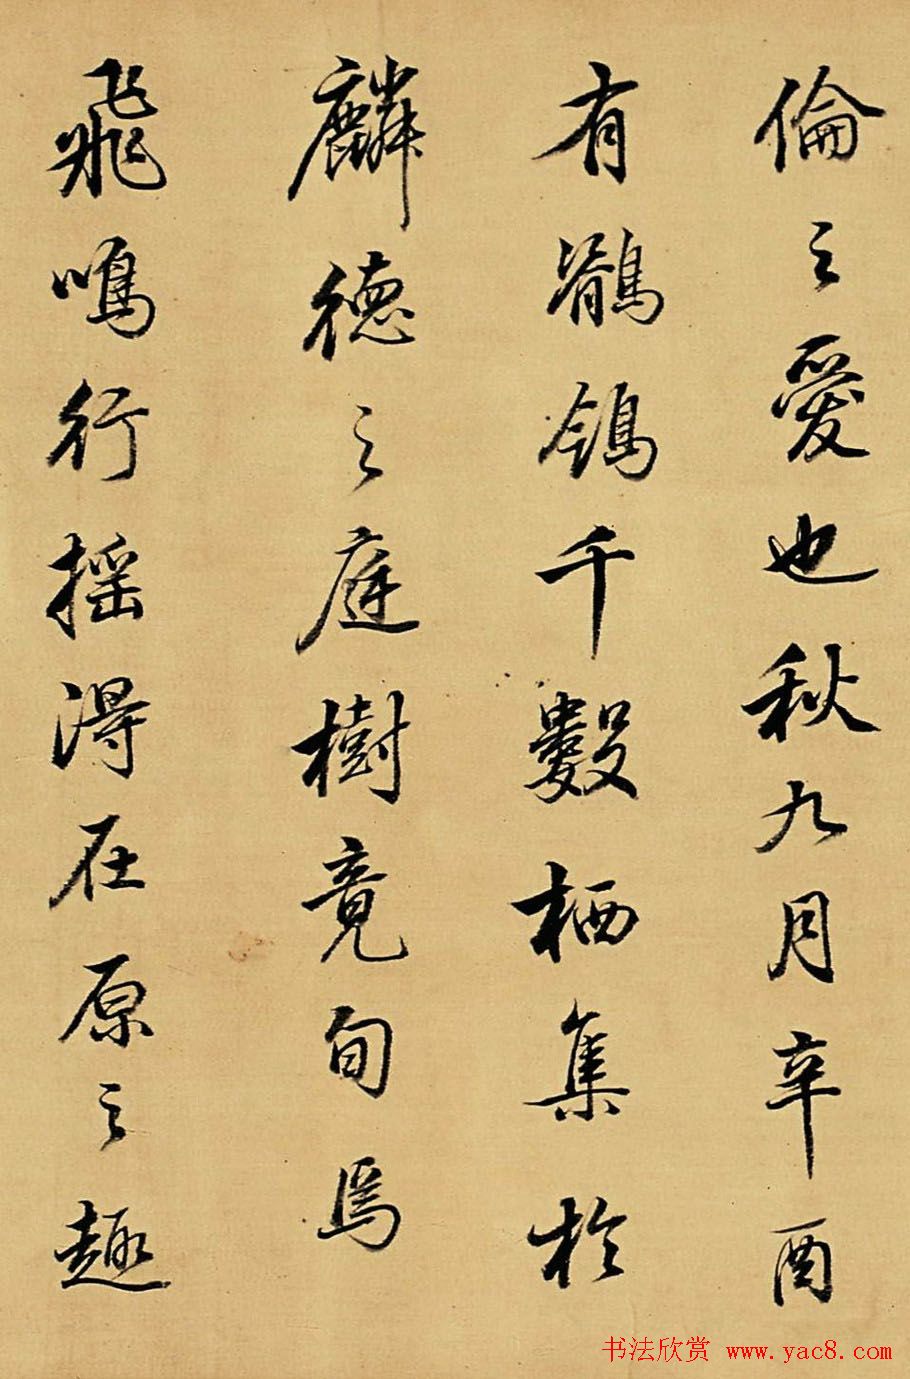 倫之愛也秋九月辛酉
有鶺鴒千數栖集於
麟德之庭樹竟旬焉
飛鳴行搖淂在原之趣
书法欣赏 www.yac8.com